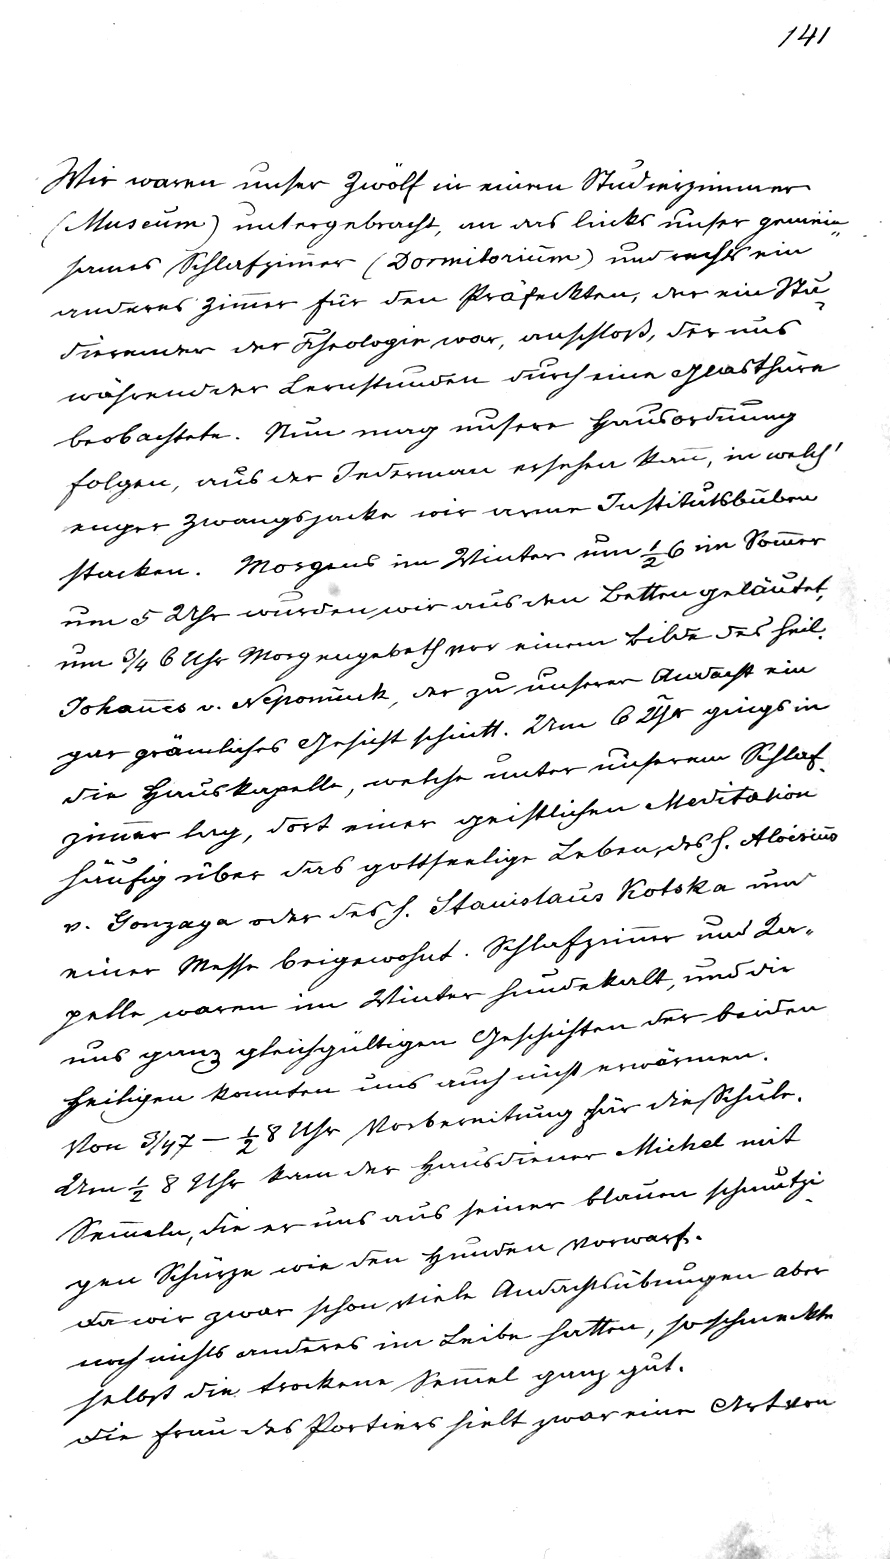 141
Wir waren unser Zwölf in einem Studierzimmer
(Museum) untergebracht, an das links unser gemein„
sames Schlafzim̄er (Dormitorium) und rechts ein
anderes Zim̄er für den Präfeckten, der ein Stu„
dierender der Theologie war, anschloß, der uns
während der Lernstunden durch eine Glasthüre
beobachtete. Nun mag unsere Hausordnung
folgen, aus der Jederman ersehen kan̄, in welch'
enger Zwangsjacke wir arme Institutsbuben
stacken. Morgens im Winter um ½ 6 im Som̄er
um 5 Uhr wurden wir aus den Betten geläutet,
um ¾ 6 Uhr Morgengebeth vor einem Bilde des heil.
Johan̄es v. Nepomuck, der zu unserer Andacht ein
gar grämliches Gesicht schnitt. Um 6 Uhr gings in
die Hauskapelle, welche unter unserem Schlaf„
zim̄er lag, dort einer geistlichen Meditation
häufig über das gottseelige Leben des h. Aloisius
v. Gonzaga oder des h. Stanislaus Kotska und
einer Messe beigewohnt. Schlafzim̄er und Ka„
pelle waren im Winter hundekalt, und die
uns ganz gleichgültigen Geschichten der beiden
Heiligen konnten uns auch nicht erwärmen.
Von ¾ 7 – ½ 8 Uhr Vorbereitung für die Schule.
Um ½ 8 Uhr kam der Hausdiener Michel mit
Sem̄eln, die er uns aus seiner blauen schmutzi„
gen Schürze wie den Hunden vorwarf.
Da wir zwar schon viele Andachtsübungen aber
noch nichts anderes im Leibe hatten, so schmeckte
selbst die trockene Sem̄el ganz gut.
Die Frau des Portiers hielt zwar eine Art von